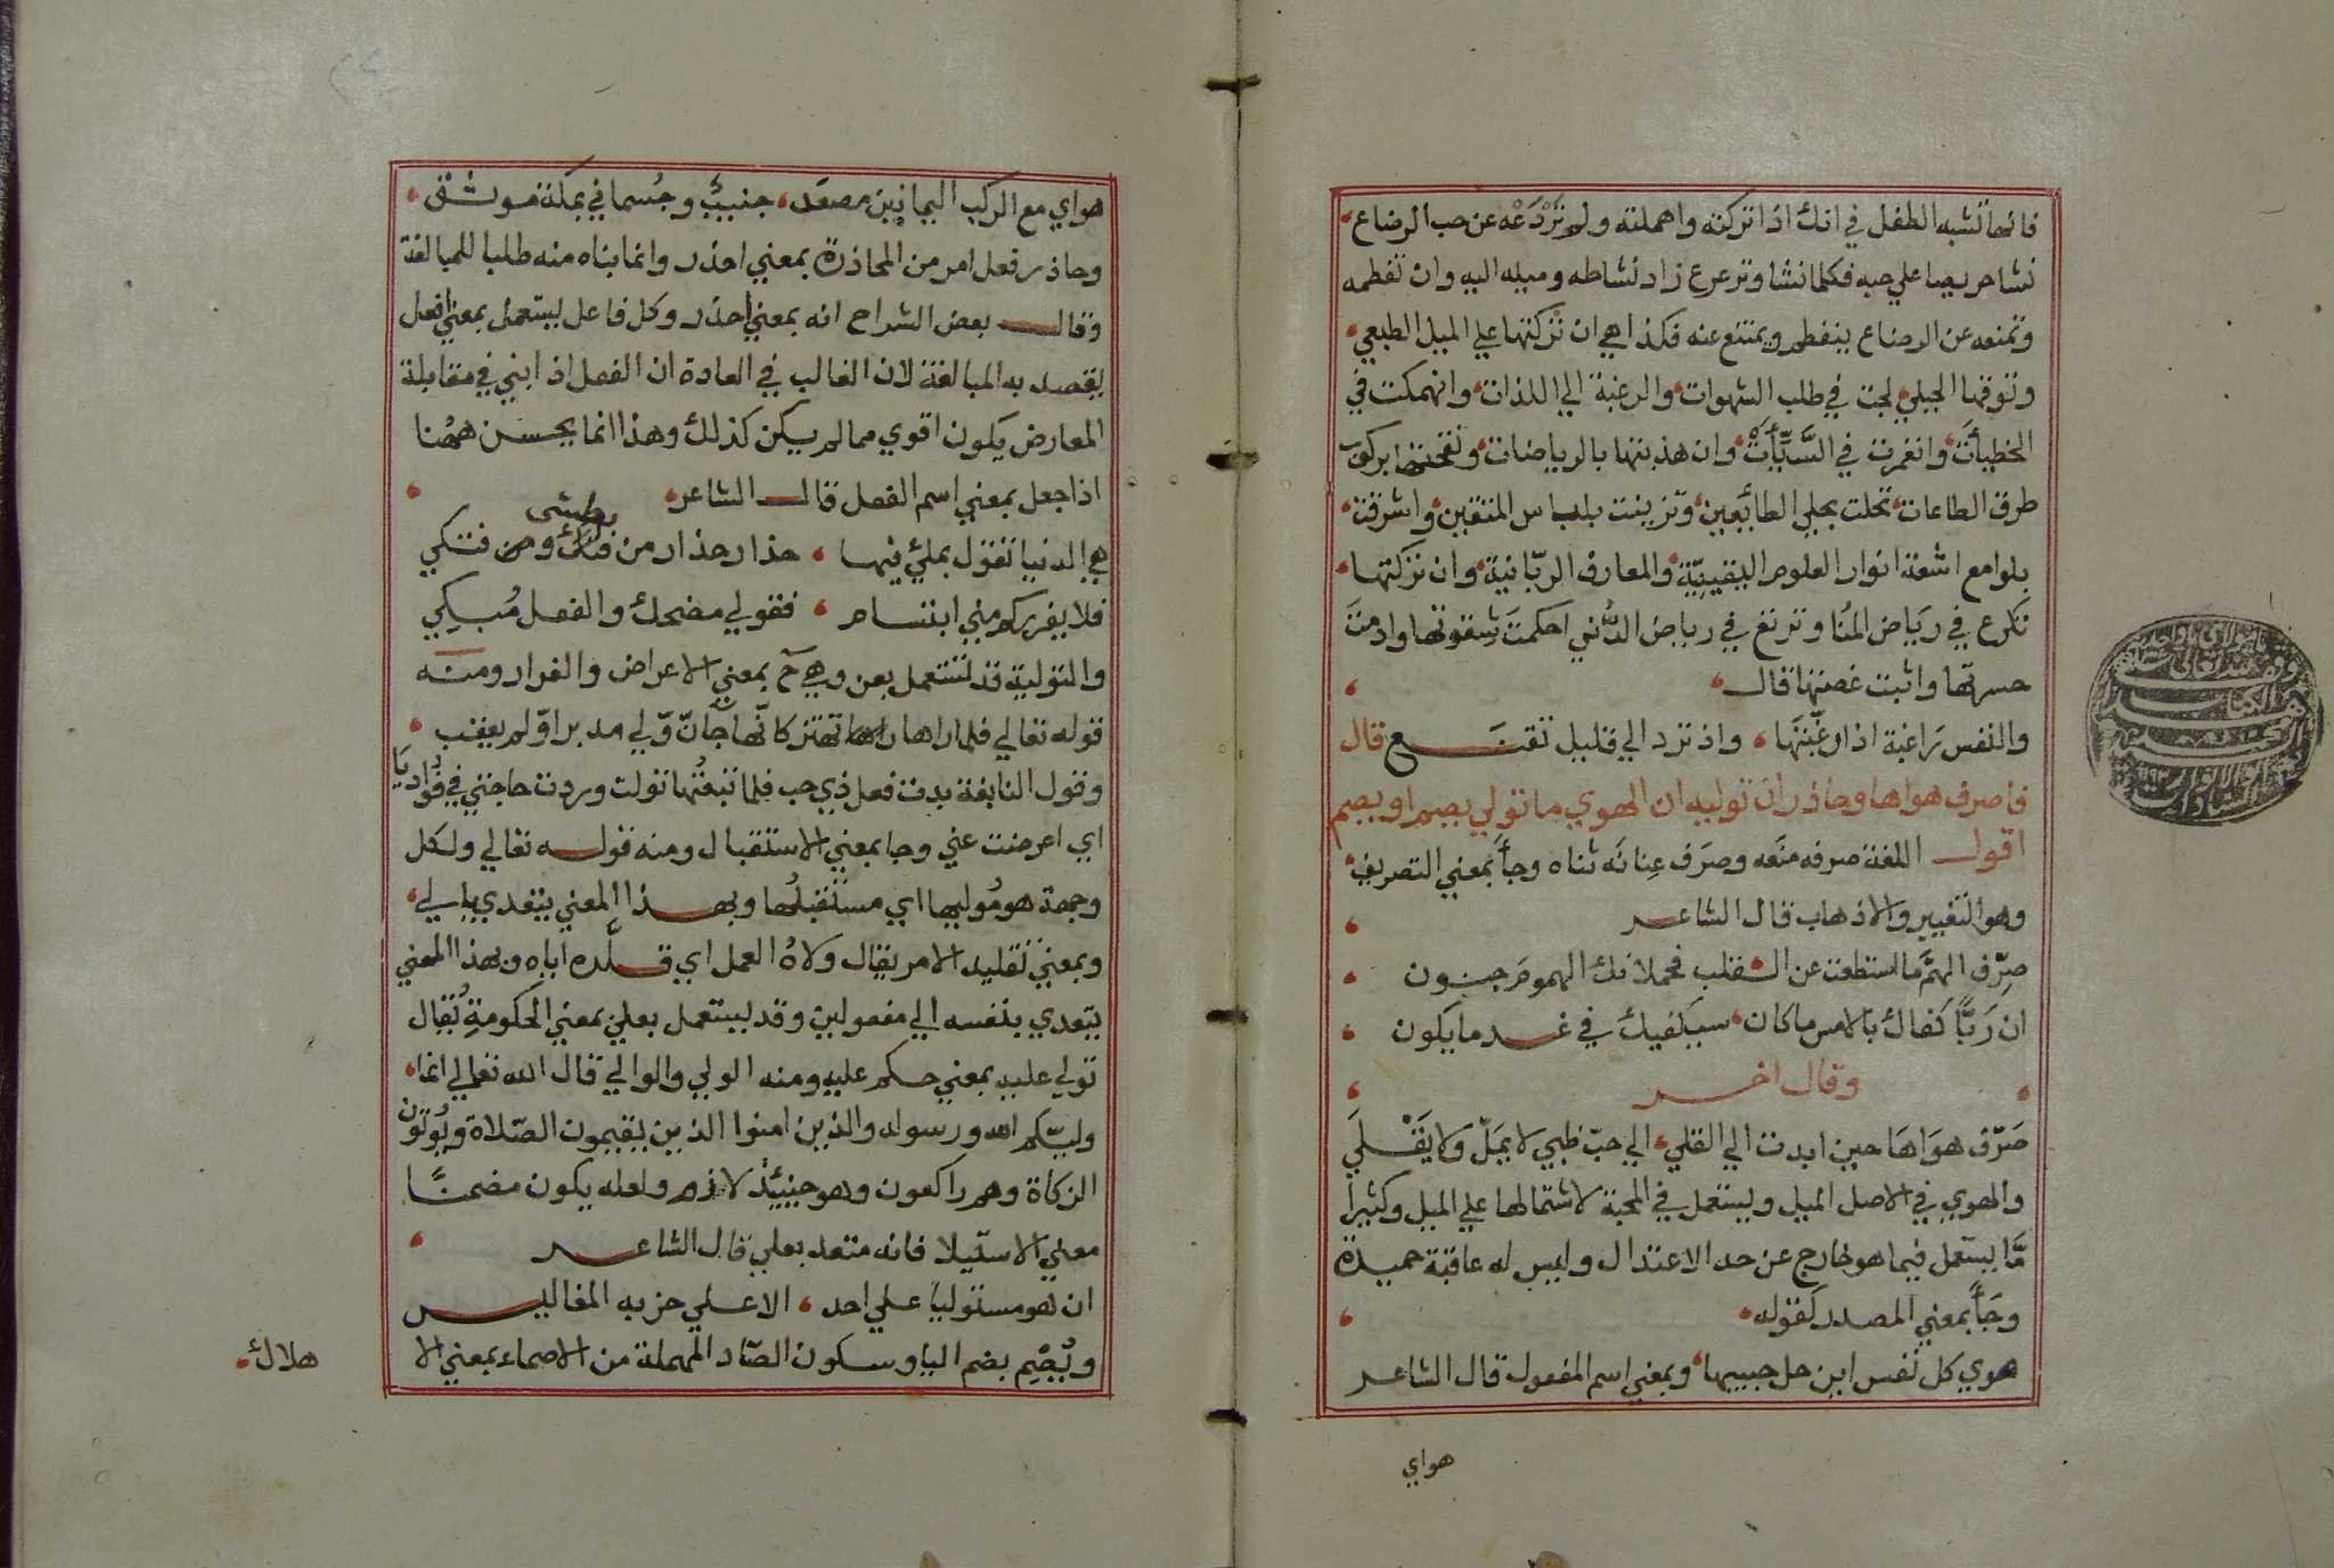 فانها تشبه الطفل في انك اذا تركته واهملته ولم تَرْدَعْه عن حب الرضاع
نشا حريصا علي حبه فكلما نشا وترعرع زاد نشاطه وميله اليه وان تفطمه
وتمنعه عن الرضاع ينفطم ويمتنع عنه فكذا هي ان تركتها علي الميل الطبعي
وتوقها الجبلي لجت في طلب الشهوات والرغبة الي اللذات وانهمكت في
الخطيأت وانغمرت في السَّيِّأت وان هذبتها بالرياضات
طرق الطاعات تحلت بحلي الطائعين وتزينت بلباس المتقين واشرقت
بلوامع اشعة انوار العلوم اليقينيّة والمعارف الربّانية وان تركتها
تكرع في رياض المُنا وترتع في رياض الدُّني احكمت شقوتها وادمت
حسرتها واثبت غصتها قال
والنفس رَاغبة اذا رغّبتَها واذ ترد الي قليل تقنع قال
فاصرف هواها وحاذر ان توليه ان الهوي ما تولي يصم او يصم
اقول اللغة صرفه منَعه وصَرَف عِنانَه ثناه وجأ بمعني التصريف
وهو التغيير والاذهاب قال الشاعر
صرّف الهمّ ما استطعت عن القلب فحملانك الهموم جنون
ان رَبًّا كفاك بالامس ما كان سيكفيك في غد ما يكون
وقال اخر
صَرّف هوَاهَا حين ابدت الي القلي الي حبّ ظبي لا يملّ ولا يَقْلَي
والهوي في الاصل الميل ويستعمل في المحبة لاشتمالها علي الميل وكثيرا
مَّا يستعمل فيما هو خارج عن حد الاعتدال وليس له عاقبة حميدة
وجَأ بمعني المصدر كقوله
هوي كل نفس اين حل حبيبها وبمعني اسم المفعول قال الشاعر
هواي
هواي مع الركب اليمانين مصعَد جنيبٌ وجُسماني بمكة موثق
وحاذر فعل امر من المحاذرة بمعني احذر وانما بناه منه طلبا للمبالغة
وقال بعض الشراح انه بمعني احذر وكل فاعل يستعمل بمعني افعل
يقصد به المبالغة لان الغالب في العادة ان الفعل اذا بني في مقابلة
المعارض يكون اقوي مما لم يكن كذلك وهذا انما يحسن ههنا
اذا جعل بمعني اسم الفعل قال الشاعر
هي الدنيا تقول بملئ فيها حذار حذار من بطشى ومن فتكي
فلا يغرركم مني ابتسام فقولي مضحك والفعل مُبكِي
والتولية قد تستعمل بعن وهي ح بمعني الاعراض والفرار ومنه
قوله تعالي فلما راها تهتز كانّها جانّ وّلي مدبرا وّلم يعقب
وقول النابغة بدت فعل ذي حب فلما تبعتُها تولت وردت حاجتي في فُواديَا
اي اعرضت عني وجا بمعني الاستقبال ومنه قوله تعالي ولكل
وجهة هو مُوليها اي مستقبلُها وبهذا المعني يتعدي بالي
وبمعني تقليد الامر يقال ولاهُ العمل اي قلّده اياه وبهذا المعني
يتعدي بنفسه الي مفعولين وقد يستعمل بعلي بمعني الحكومةِ يُقال
تولي عليه بمعني حكم عليه ومنه الولي والوالي قال الله تعالي انما
وليّكم الله ورسوله والذين امنوا الذين يقيمون الصّلاة ويُوتون
الزكاة وهم راكعون وهو حينيئذٍ لازم ولعله يكون مضمنًا
معني الاستيلا فانه متعد بعلي قال الشاعر
ان هو مستوليا علي احد الا علي حزبه المغاليس
ويُصْمِ بضم اليا وسكون الصّاد المهملة من الاصماء بمعني الا
هلاك